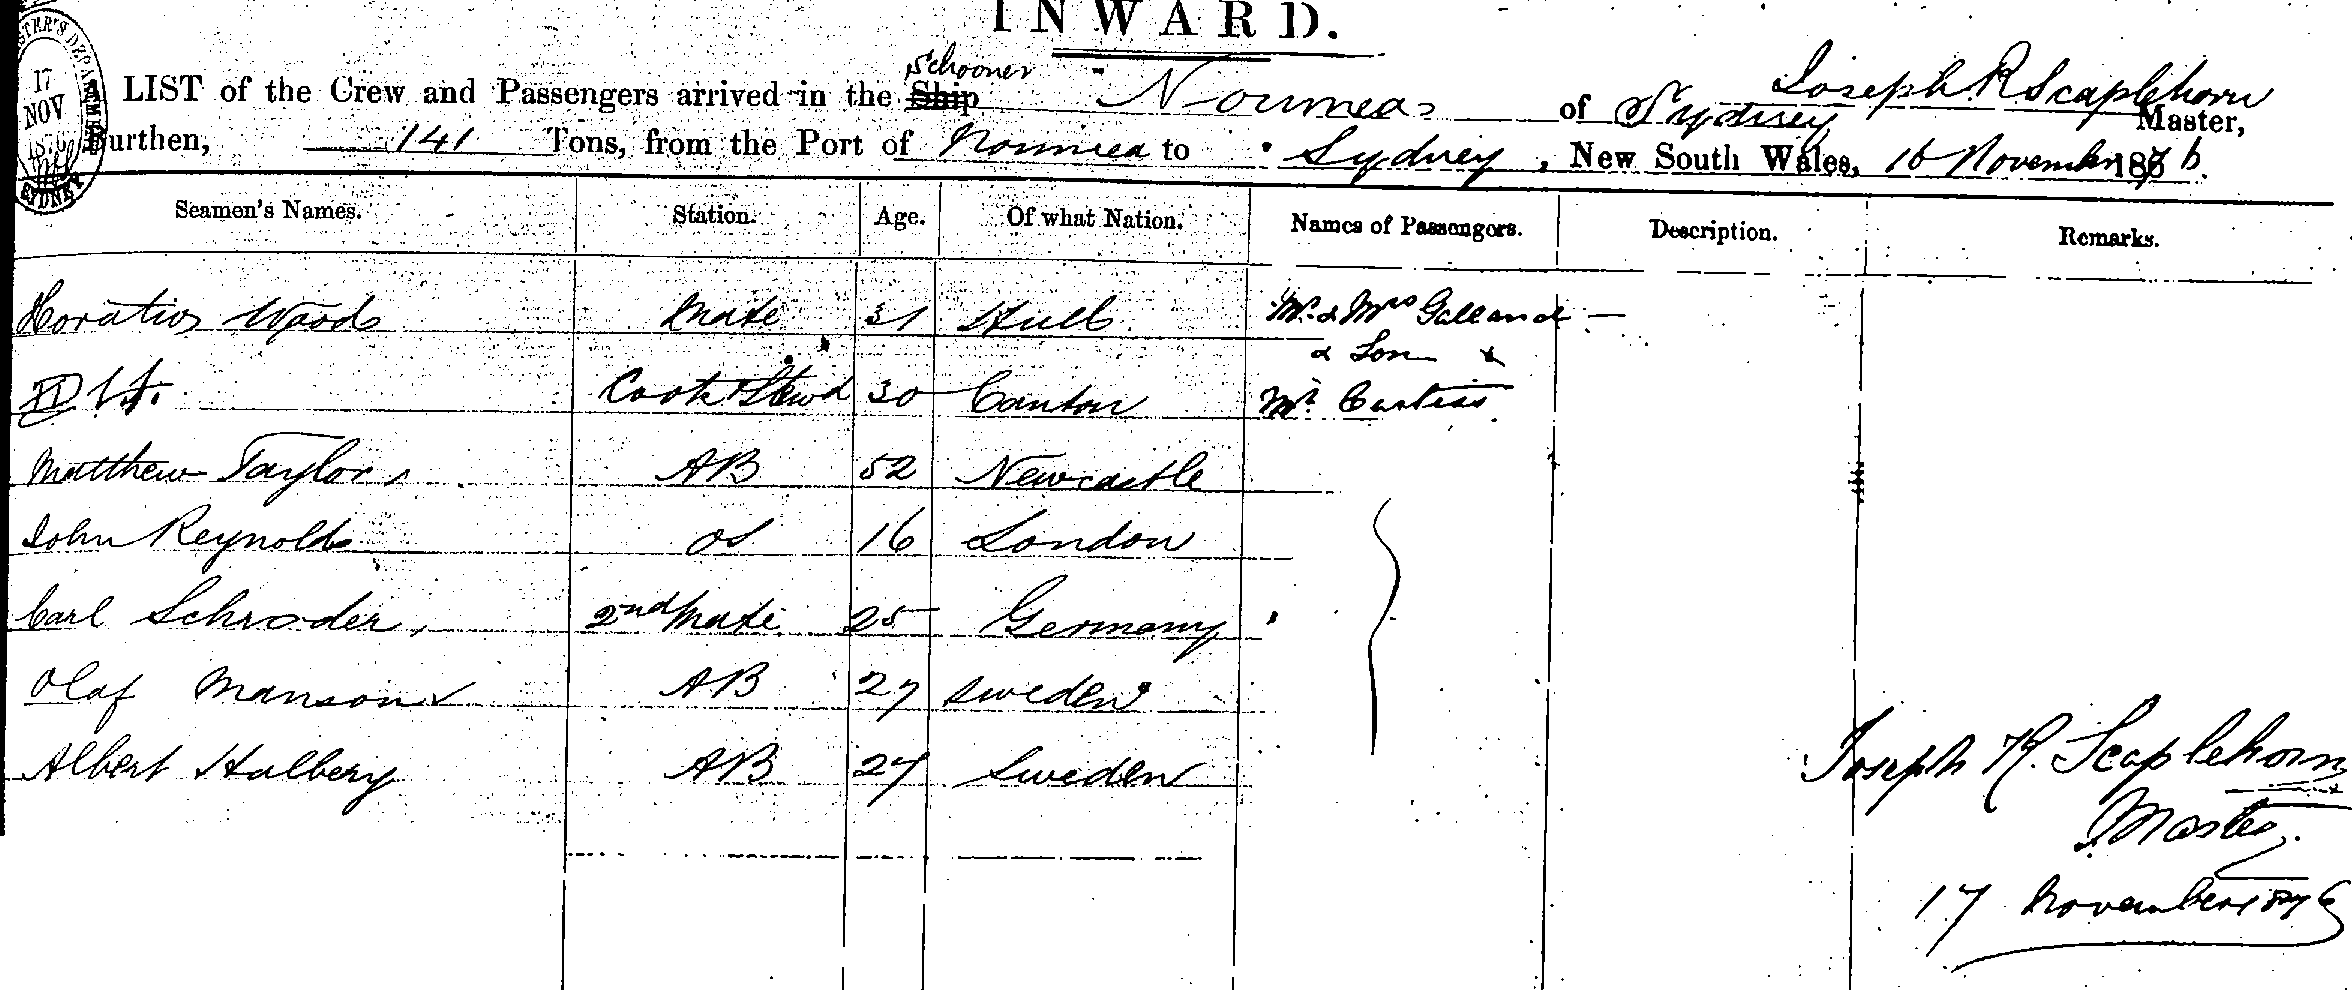 INWARD.
Schooner
LIST of the Crew and Passengers arrived in the Ship Noumea of Sydney Joseph R Scaplehorn Master,
Burthen, 141 Tons, from the Port of Noumea to Sydney, New South Wales, 16 November 1876.
17
NOV
1876
SYDNEY
Seamen's Names. Station. Age. Of what Nation. Names of Passengers. Description. Remarks.
Horatio Woods Mate 31 Hull Mr & Mrs Galland
& Son &
Cook & Stewd 30 Canton Mr
Matthew Taylor AB 52 Newcastle
John Reynolds OS 16 London
Carl Schroder 2nd Mate 25 Germany
Olaf Manson AB 27 Sweden
Albert Halbery AB 27 Sweden
Joseph R. Scaplehorn
Master.
17 November 1876